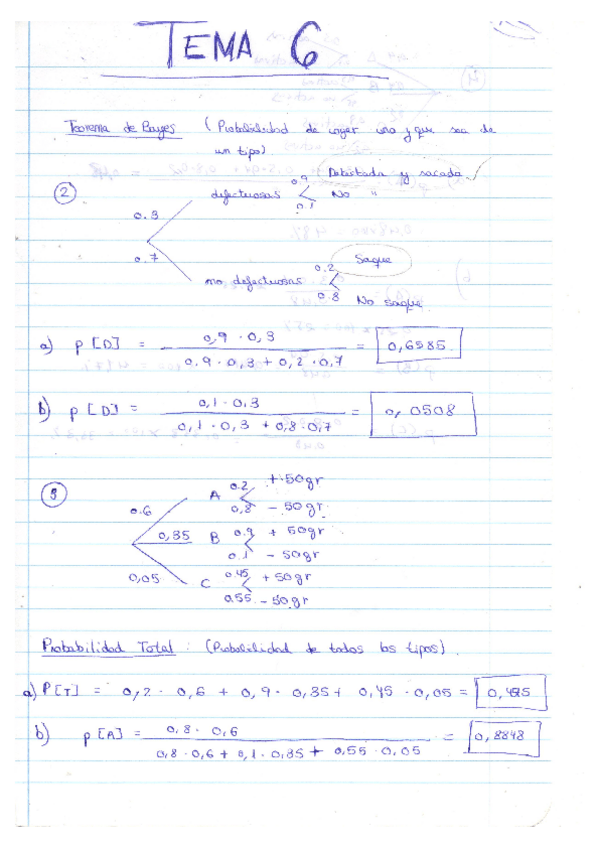 TEMA 6
Teorema de Bayes (Probabilidad de coger uno y que sea de
un tipo)
2
0.3
0.7
defectuosas
0.9 Detectada y sacada
0.1 No "
no defectuosas
0.2 Saque
0.8 No saque
a) p [D] = 0,9 · 0,3 / 0.9 · 0,3 + 0,2 · 0,7 = 0,6585
b) p [D] = 0,1 · 0,3 / 0,1 · 0,3 + 0,8 · 0,7 = 0,0508
0.6
0,35
0,05
A 0.2 + 50gr
0,8 - 50gr
B 0.9 + 50gr
0.1 - 50gr
C 0.45 + 50gr
0.55 - 50gr
Probabilidad Total : (Probabilidad de todos los tipos).
a) P[T] = 0,2 · 0,6 + 0,9 · 0,35 + 0,45 · 0,05 =
b) p[A] = 0,8 · 0,6 / 0,8 · 0,6 + 0,1 · 0,35 + 0,55 · 0,05 = 0,8848